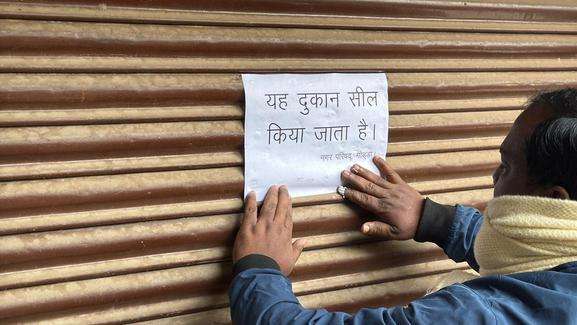 यह दुकान सील
किया जाता है।
नगर परिषद्